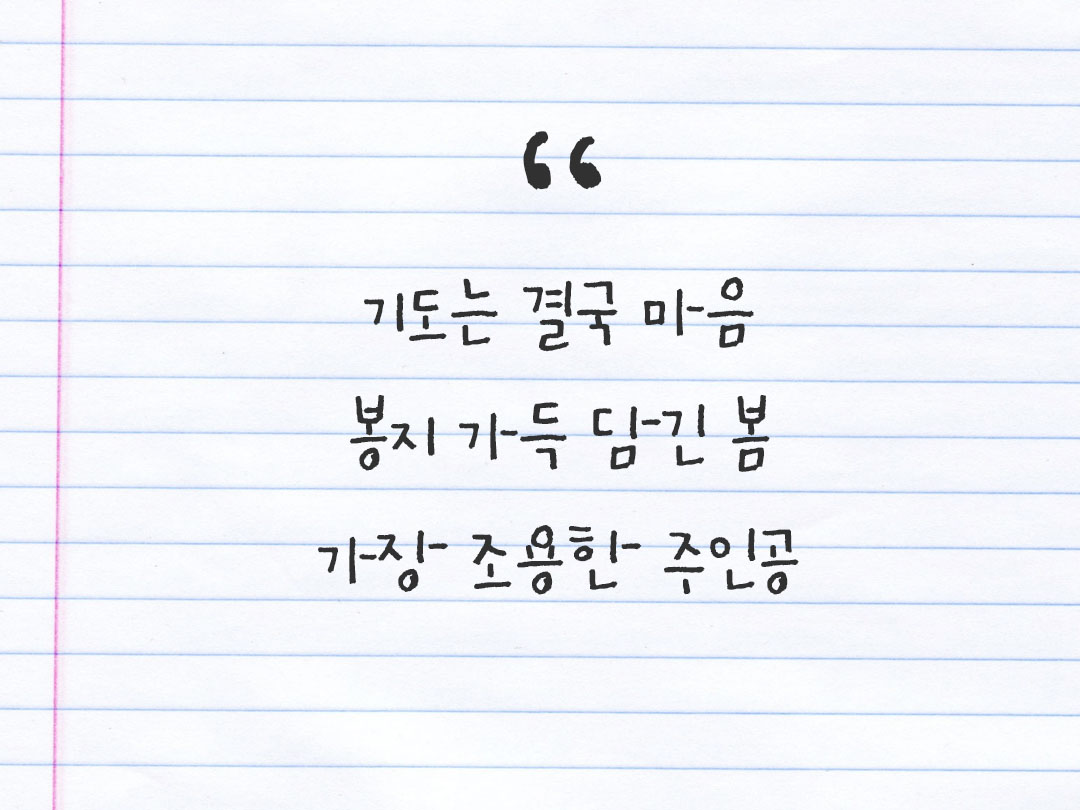 “
기도는 결국 마음
봉지 가득 담긴 봄
가장 조용한 주인공